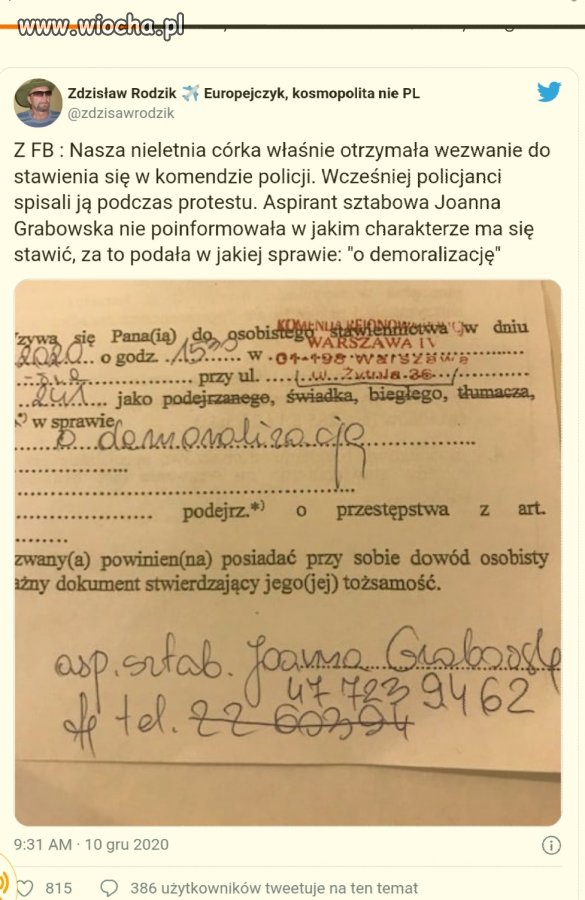 www.wiocha.pl
Zdzisław Rodzik ✈️ Europejczyk, kosmopolita nie PL
@zdzisawrodzik
Z FB : Nasza nieletnia córka właśnie otrzymała wezwanie do
stawienia się w komendzie policji. Wcześniej policjanci
spisali ją podczas protestu. Aspirant sztabowa Joanna
Grabowska nie poinformowała w jakim charakterze ma się
stawić, za to podała w jakiej sprawie: "o demoralizację"
KOMENDA REJONOWA
zywa się Pana(ią) do osobistego stawiennictwa w dniu
WARSZAWA IV
2020 o godz. 15 w 01-198 Warszawa
przy ul. Żytnia 36
jako podejrzanego, świadka, biegłego, tłumacza,
*) w sprawie
o demoralizację
podejrz.*) o przestępstwa z art.
zwany(a) powinien(na) posiadać przy sobie dowód osobisty
ażny dokument stwierdzający jego(jej) tożsamość.
asp. sztab. Joanna Grabowska
47 723 9462
tel. 22 60394
9:31 AM · 10 gru 2020
815
386 użytkowników tweetuje na ten temat